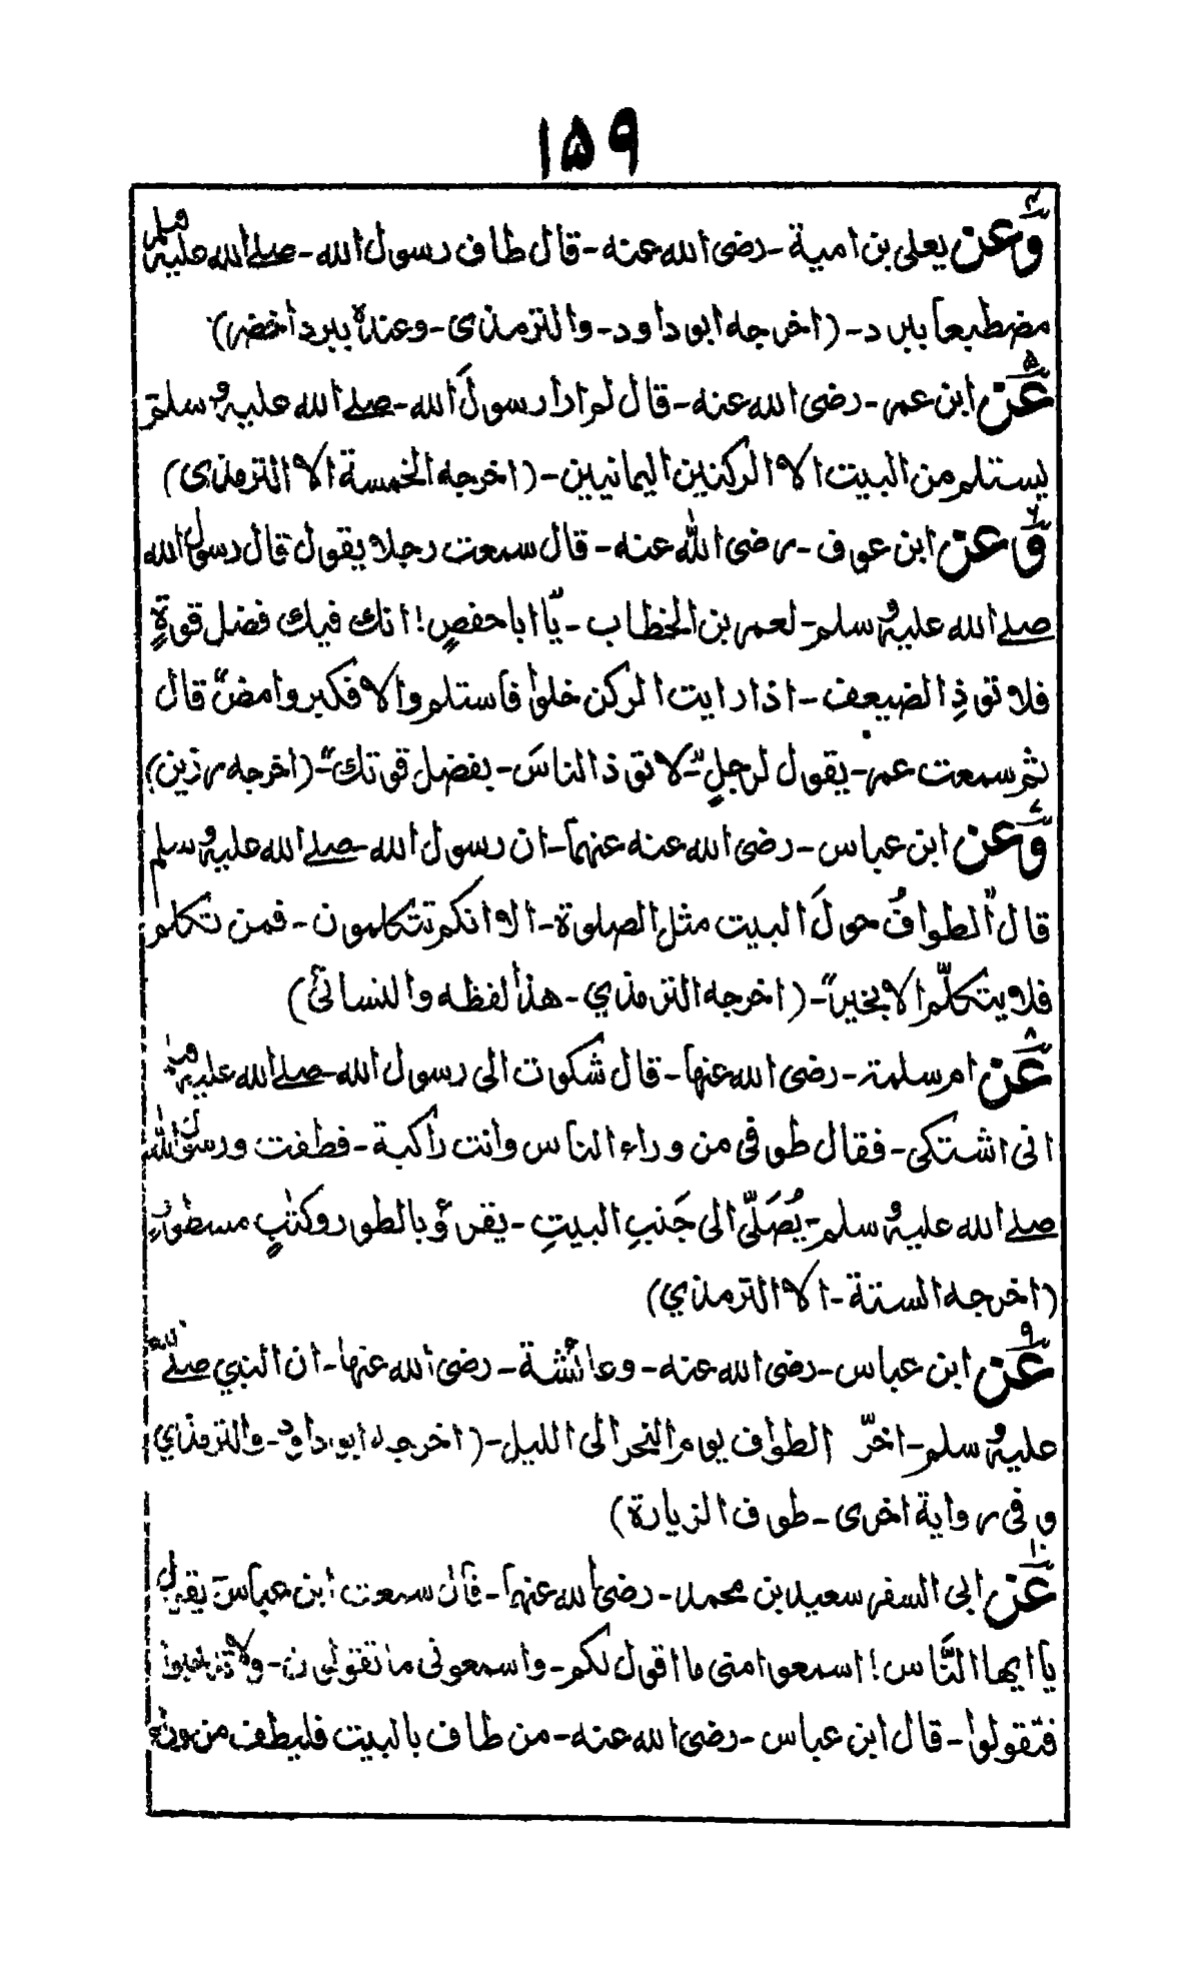 ۱۵۹
۴ وَعن يعلى بن امية - رضى الله عنه - قال طاف رسول الله - صلے الله عليه وسلم
مضطبعا ببرد - (اخرجه ابو داود - والترمذى - وعندہ ببرد اخضر)
۵ عَن ابن عمر - رضى الله عنه - قال لم ار ارسولَ الله - صلے الله عليه وسلم
يستلم من البيت الا الركنين اليمانيين - (اخرجه الخمسة الا الترمذى)
۶ وَعن ابن عوف - رضى الله عنه - قال سمعت رجلا يقول قال رسول الله
صلے الله عليه وسلم - لعمر بن الخطاب - "يا ابا حفصٍ! انك فيك فضل قوةٍ
فلا توذِ الضيعف - اذا رايت الركن خلوا فاستلم والا فكبر وامض" قال
ثم سمعت عمر - يقول لرجلٍ - "لا توذ الناسَ - بفضل قوتك" - (اخرجه رزين)
۷ وَعن ابن عباس - رضى الله عنه عنهما - ان رسول الله - صلے الله عليه وسلم
قال "الطوافُ حولَ البيت مثل الصلوة - الا انكم تتكلمون - فمن تكلم
فلا يتكلّم الا بخير" - (اخرجه الترمذي - هذا لفظه والنسائى)
۸ عَن ام سلمة - رضى الله عنها - قال شكوت الى رسول الله - صلے الله عليه وسلم
انى اشتكى - فقال طوفى من وراء الناس وانت راكبة - فطفت ورسول الله
صلے الله عليه وسلم - يُصَلّى الى جَنبِ البيتِ - يقرؤ بالطور وكتٰبٍ مسطورٍ
(اخرجه الستة - الا الترمذي)
۹ عَن ابن عباس - رضى الله عنه - وعائشة - رضى الله عنها - ان النبي صلے الله
عليه وسلم - اخرّ الطواف يوم النحر الى الليل - (اخرجه ابو داود - والترمذي
و فى رواية اخرى - طوف الزيارة)
۱۰ عَن ابى السفر سعيد بن محمد - رضى الله عنهما - قال سمعت ابن عباس يقول
يا ايها النَّاس! اسمعوا منى ما اقول لكم - واسمعونى ما تقولون - ولا تذهبوا
فتقولوا - قال ابن عباس - رضى الله عنه - من طاف بالبيت فليطف من وراء